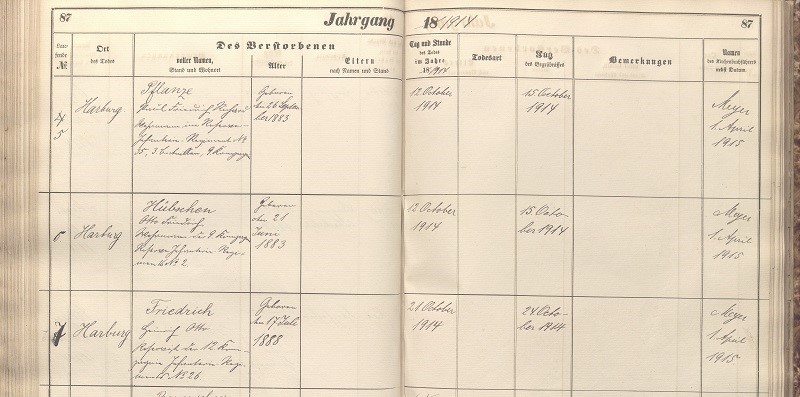 87
Jahrgang 18 1914
87
Lau-
fende
№
Ort
des Todes
Des Verstorbenen
voller Namen,
Stand und Wohnort
Alter
Eltern
nach Namen und Stand
Tag und Stunde
des Todes
im Jahre
18 1914
Todesart
Tag
des Begräbnisses
Bemerkungen
Namen
des Kirchenbuchführers
nebst Datum
4
5
Harburg
Pflanze
Friedrich
Wehrmann im Reserve
Infanterie-Regiment №
35, 3. Bataillon, 9. Kompagnie
Geboren
den 26. Septem
ber 1883
12. October
1914
15. October
1914
Meyer
1. April
1915
6
Harburg
Hübschen
Otto Friedrich
Wehrmann der 9. Kompagnie
Reserve Infanterie Regi-
ments № 2
Geboren
den 21
Juni
1883
12. October
1914
15. Octo-
ber 1914
Meyer
1. April
1915
7
Harburg
Friedrich
Heinrich Otto
Reservist der 12. Kom-
pagnie Infanterie-Regi-
ments № 26.
Geboren
den 17. Juli
1888
21. October
1914
24. Octo-
ber 1914
Meyer
1. April
1915